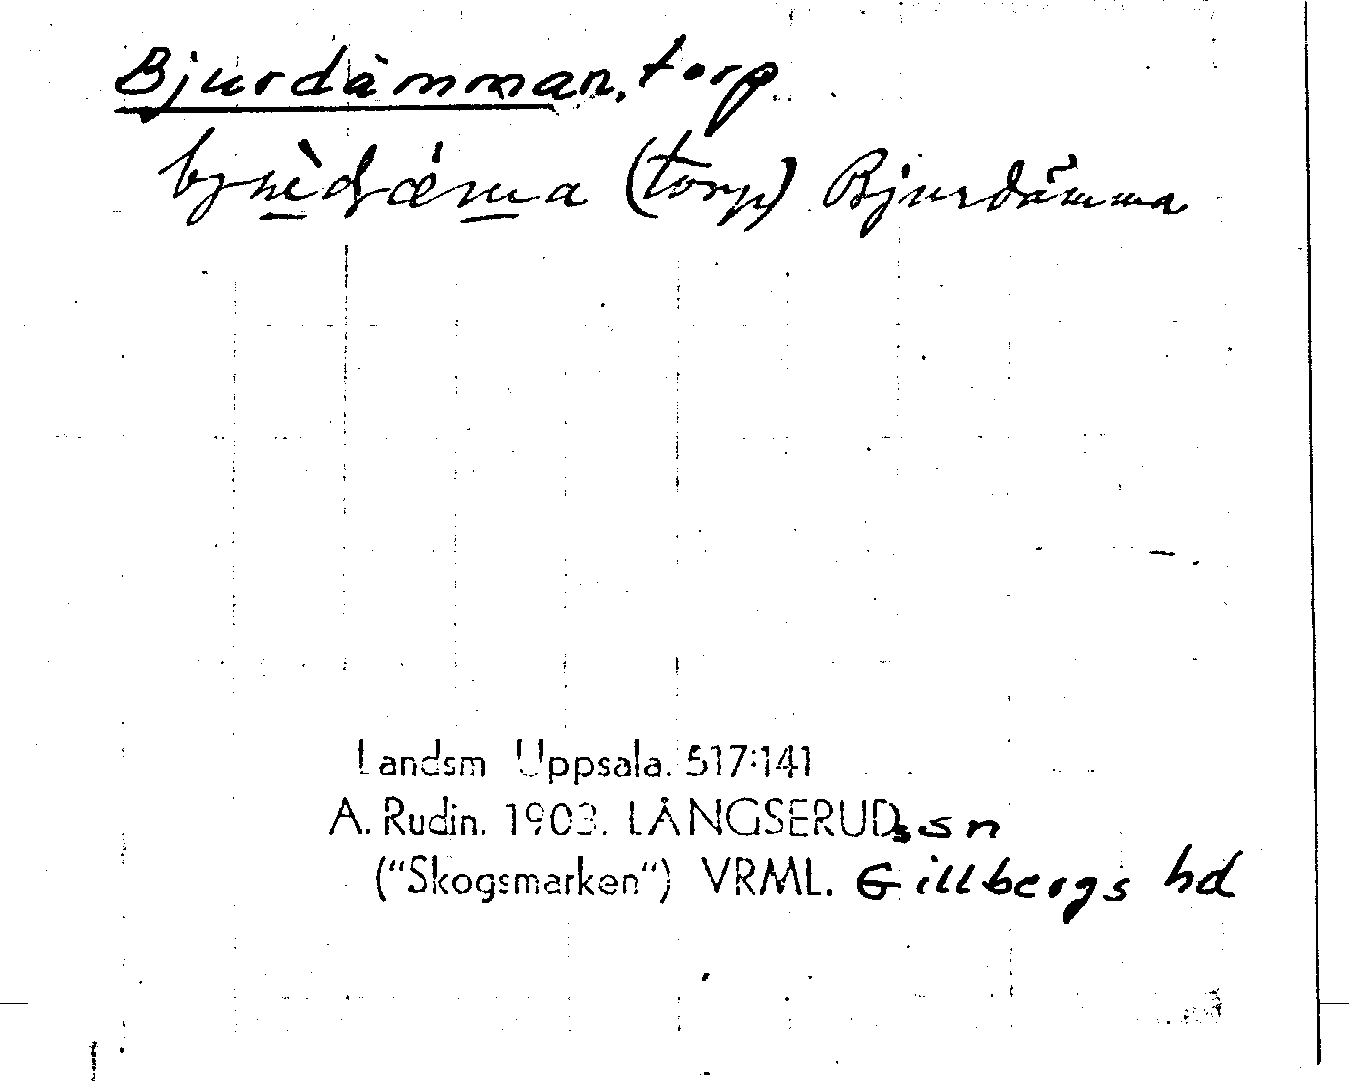 Bjurdämman, torp
(torp) Bjurdämma
Landsm Uppsala. 517:141
A. Rudin. 1903. LÅNGSERUDs sn
("Skogsmarken") VRML. Gillbergs hd